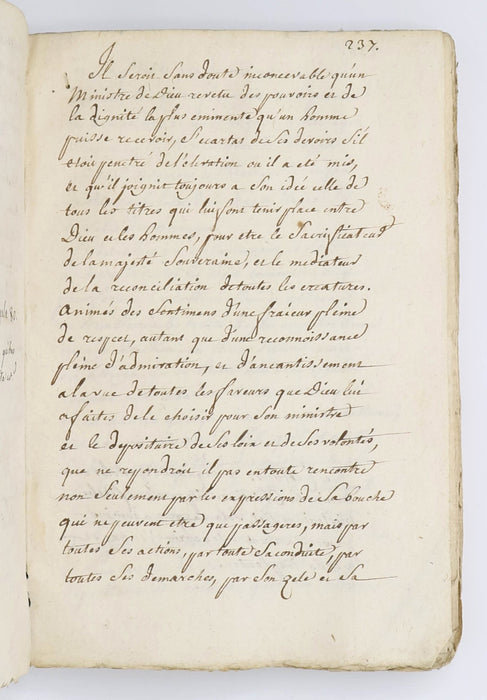 237.
Il seroit sans doute inconcevable qu'un
Ministre de Dieu revetu des pouvoirs et de
la Dignité la plus eminente qu'un homme
puisse recevoir, s'ecartas de ses devoirs s'il
etoit penetré de l'elevation ou il a eté mis,
et qu'il joignit toujours a son idée celle de
tous les titres qui lui font tenir place entre
Dieu et les hommes, pour etre le Sacrificateur
de la majesté Souveraine, et le mediateur
de la reconciliation de toutes les creatures.
Animés des Sentimens d'une fraieur pleine
de respect, autant que d'une reconnoissance
pleine d'admiration, et d'aneantissement
a la vue de toutes les faveurs que Dieu lui
a faites de le choisir pour son ministre
et le depositaire de ses loix et de ses volontés,
que ne repondroit il pas en toute rencontre
non seulement par les expressions de sa bouche
qui ne peuvent etre que passageres, mais par
toutes ses actions, par toute sa conduite, par
toutes ses demarches, par son zele et sa